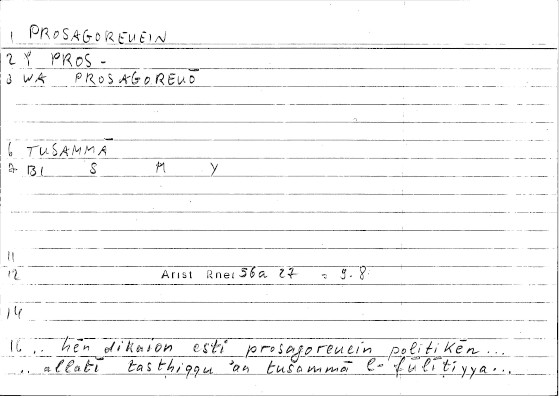 1 PROSAGOREUEIN
2 Y PROS -
3 WA PROSAGOREUŌ
6 TUSAMMĀ
7 BI S M Y
11
12 Arist Rhet 56a 27 = 9.8
14
16 .. hēn dikaion esti prosagoreuein politikēn ...
.. allatī tastḥiqqu 'an tusammā l-fūlītiyya ...